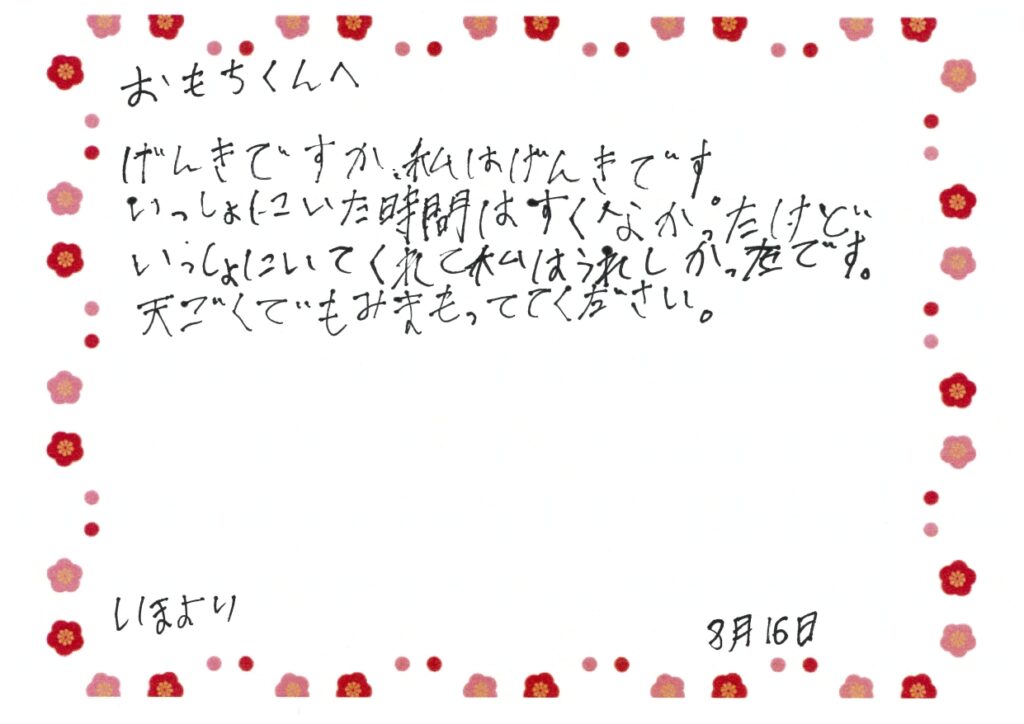 おもちくんへ
げんきですか、私はげんきです
いっしょにいた時間はすくなかったけど
いっしょにいてくれて私はうれしかったです。
天ごくでもみまもっててください。
しほより
8月16日